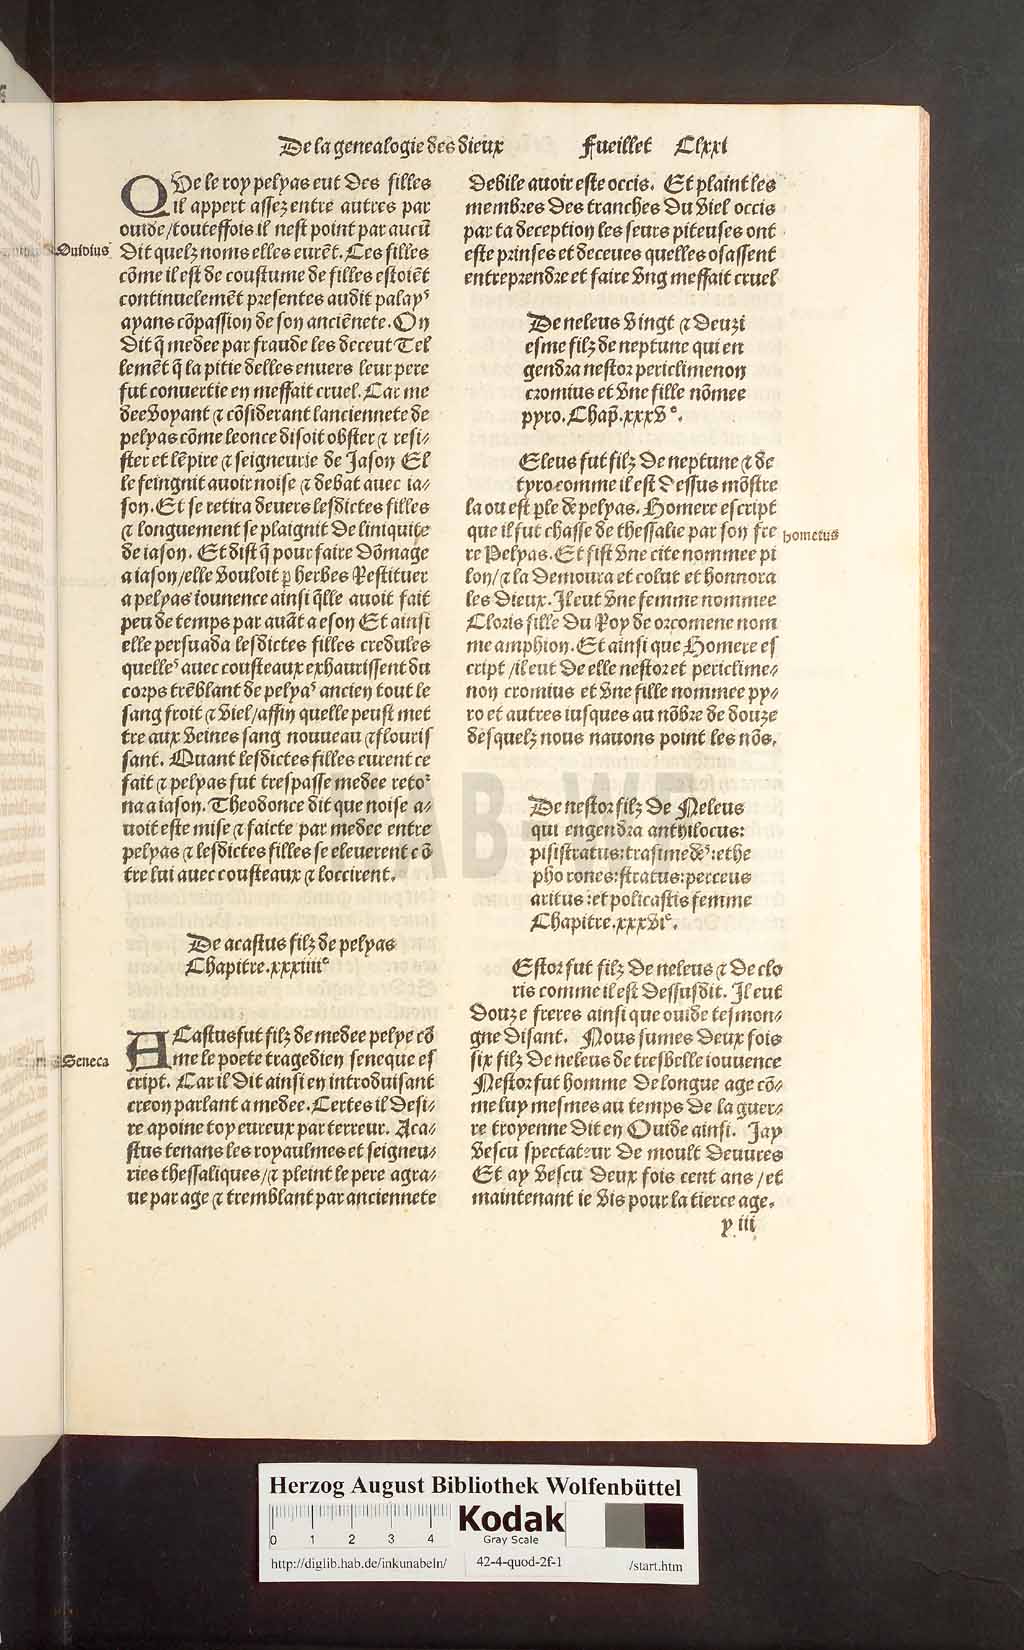 De la genealogie des dieux Fueillet Clxxi
QUe le roy pelyas eut des filles
il appert assez entre autres par
ouide/touteffois il nest point par aucū
dit quelz noms elles eurēt. Ces filles
cōme il est de coustume de filles estoiēt
continuelemēt presentes audit palayꝰ
ayans cōpassion de son anciēnete. On
dit q̄ medee par fraude les deceut Tel
lemēt q̄ la pitie delles enuers leur pere
fut conuertie en meffait cruel. Car me
dee voyant ⁊ cōsiderant lanciennete de
pelyas cōme leonce disoit obster ⁊ resi⸗
ster et lēpire ⁊ seigneurie de Jason El
le feingnit auoir noise ⁊ debat auec ia⸗
son. Et se retira deuers lesdictes filles
⁊ longuement se plaignit de liniquite
de iason. Et dist q̄ pour faire dōmage
a iason/elle vouloit ꝑ herbes Restituer
a pelyas iounence ainsi q̄lle auoit fait
peu de temps par auāt a eson Et ainsi
elle persuada lesdictes filles credules
quelleꝰ auec cousteaux exhaurissent du
corps trēblant de pelyaꝰ ancien tout le
sang froit ⁊ viel/affin quelle peust met
tre aux veines sang nouueau ⁊ flouris
sant. Quant lesdictes filles eurent ce
fait ⁊ pelyas fut trespasse medee reto᷑
na a iason. Theodonce dit que noise a⸗
uoit este mise ⁊ faicte par medee entre
pelyas ⁊ lesdictes filles se eleuerent cō
tre lui auec cousteaux ⁊ loccirent.
De acastus filz de pelyas
Chapitre.xxxiiiiᵉ
ACastus fut filz de medee pelye cō
me le poete tragedien seneque es
cript. Car il dit ainsi en introduisant
creon parlant a medee. Certes il desi⸗
re apoine toy eureux par terreur. Aca⸗
stus tenans les royaulmes et seigneu⸗
ries thessaliques/⁊ pleint le pere agra⸗
ue par age ⁊ tremblant par anciennete
Ouidius
Seneca
debile auoir este occis. Et plaint les
membres des tranches du viel occis
par ta deception les seurs piteuses ont
este prinses et deceues quelles osassent
entreprendre et faire vng meffait cruel
De neleus vingt ⁊ deuzi
esme filz de neptune qui en
gendra nestor periclimenon
cromius et vne fille nōmee
pyro. Chap̄.xxxvᵉ.
Eleus fut filz de neptune ⁊ de
tyro comme il est dessus mōstre
la ou est ꝑle de pelyas. Homere escript
que il fut chasse de thessalie par son fre
re Pelyas. Et fist vne cite nommee pi
lon/⁊ la demoura et colut et honnora
les dieux. Il eut vne femme nommee
Cloris fille du Roy de orcomene nom
me amphion. Et ainsi que Homere es
cript /il eut de elle nestor et periclime⸗
non cromius et vne fille nommee py⸗
ro et autres iusques au nōbre de douze
desquelz nous nauons point les nōs.
homerus
De nestor filz de Neleus
qui engendra anthilocus:
pisistratus: trasimedeꝰ: ethe
pho rones: stratus: perceus
aritus: et policastis femme
Chapitre.xxxviᵉ.
Estor fut filz de neleus ⁊ de clo
ris comme il est dessusdit. Il eut
douze freres ainsi que ouide tesmon⸗
gne disant. Nous sumes deux fois
six filz de neleus de tresbelle iouuence
Nestor fut homme de longue age cō⸗
me luy mesmes au temps de la guer⸗
re troyenne dit en Ouide ainsi. Jay
vescu spectateur de moult deuures
Et ay vescu deux fois cent ans /et
maintenant ie vis pour la tierce age.
y iii
HAB-WF
Herzog August Bibliothek Wolfenbüttel
0 1 2 3 4
Kodak
Gray Scale
http://diglib.hab.de/inkunabeln/ 42-4-quod-2f-1 /start.htm